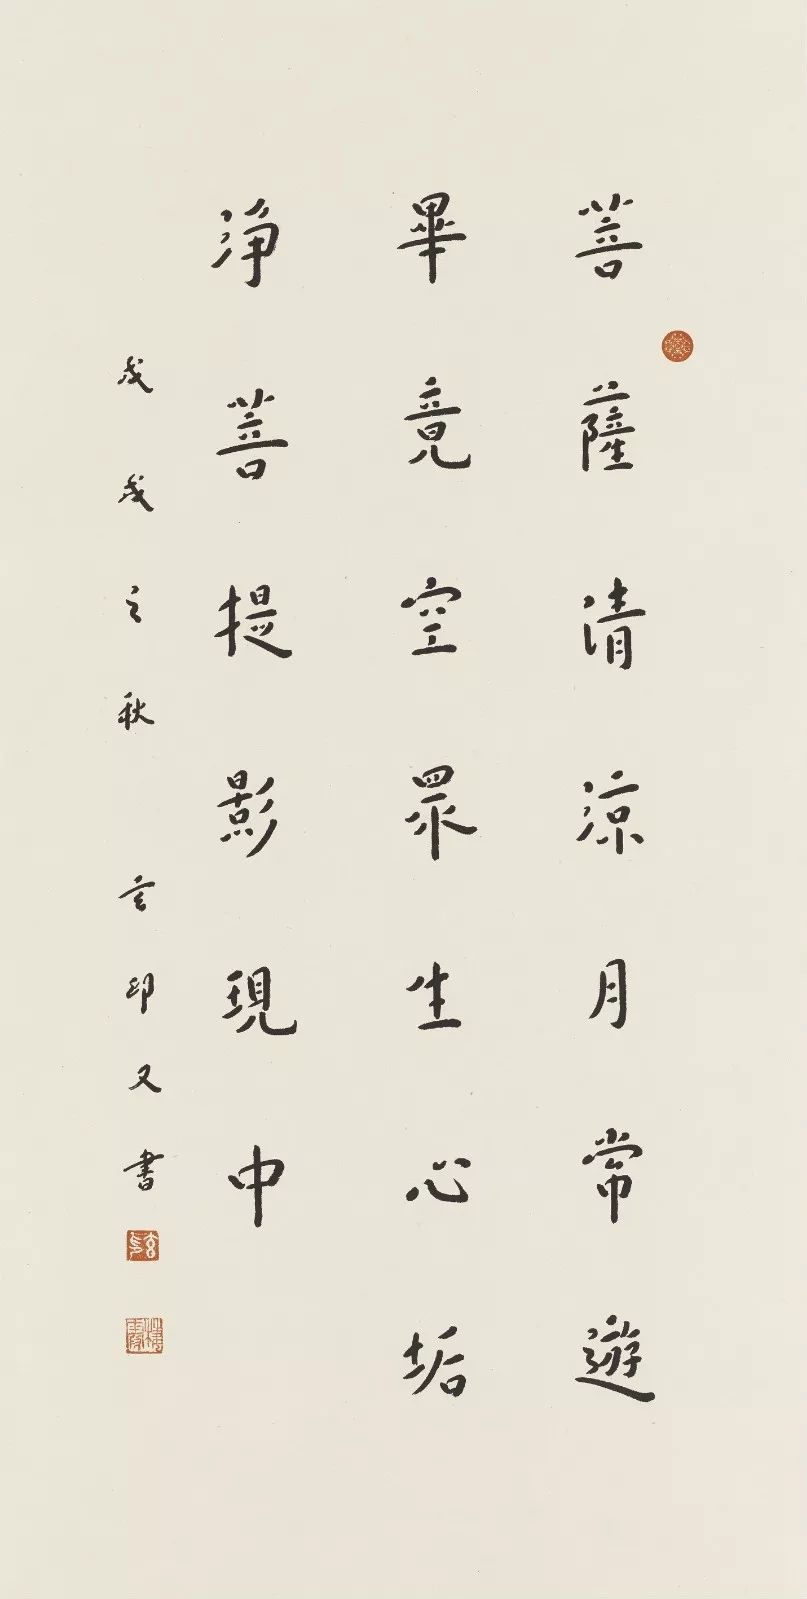 菩薩清涼月常遊
畢竟空眾生心垢
淨菩提影現中
戊戌之秋 玄印又書
玄印